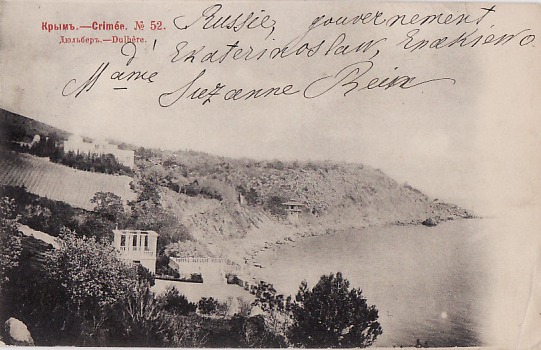 Крымъ.—Crimée. № 52.
Дюльберъ.—Dulbère.
Russie, gouvernement
d'Ekaterinoslaw, Enakiewo.
Mame Suzanne Rein